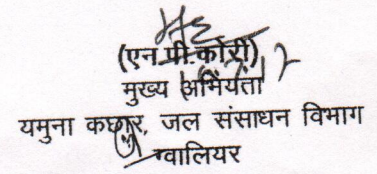 (एन.पी.कोरी)
मुख्य अभियंता
यमुना कछार, जल संसाधन विभाग
ग्वालियर